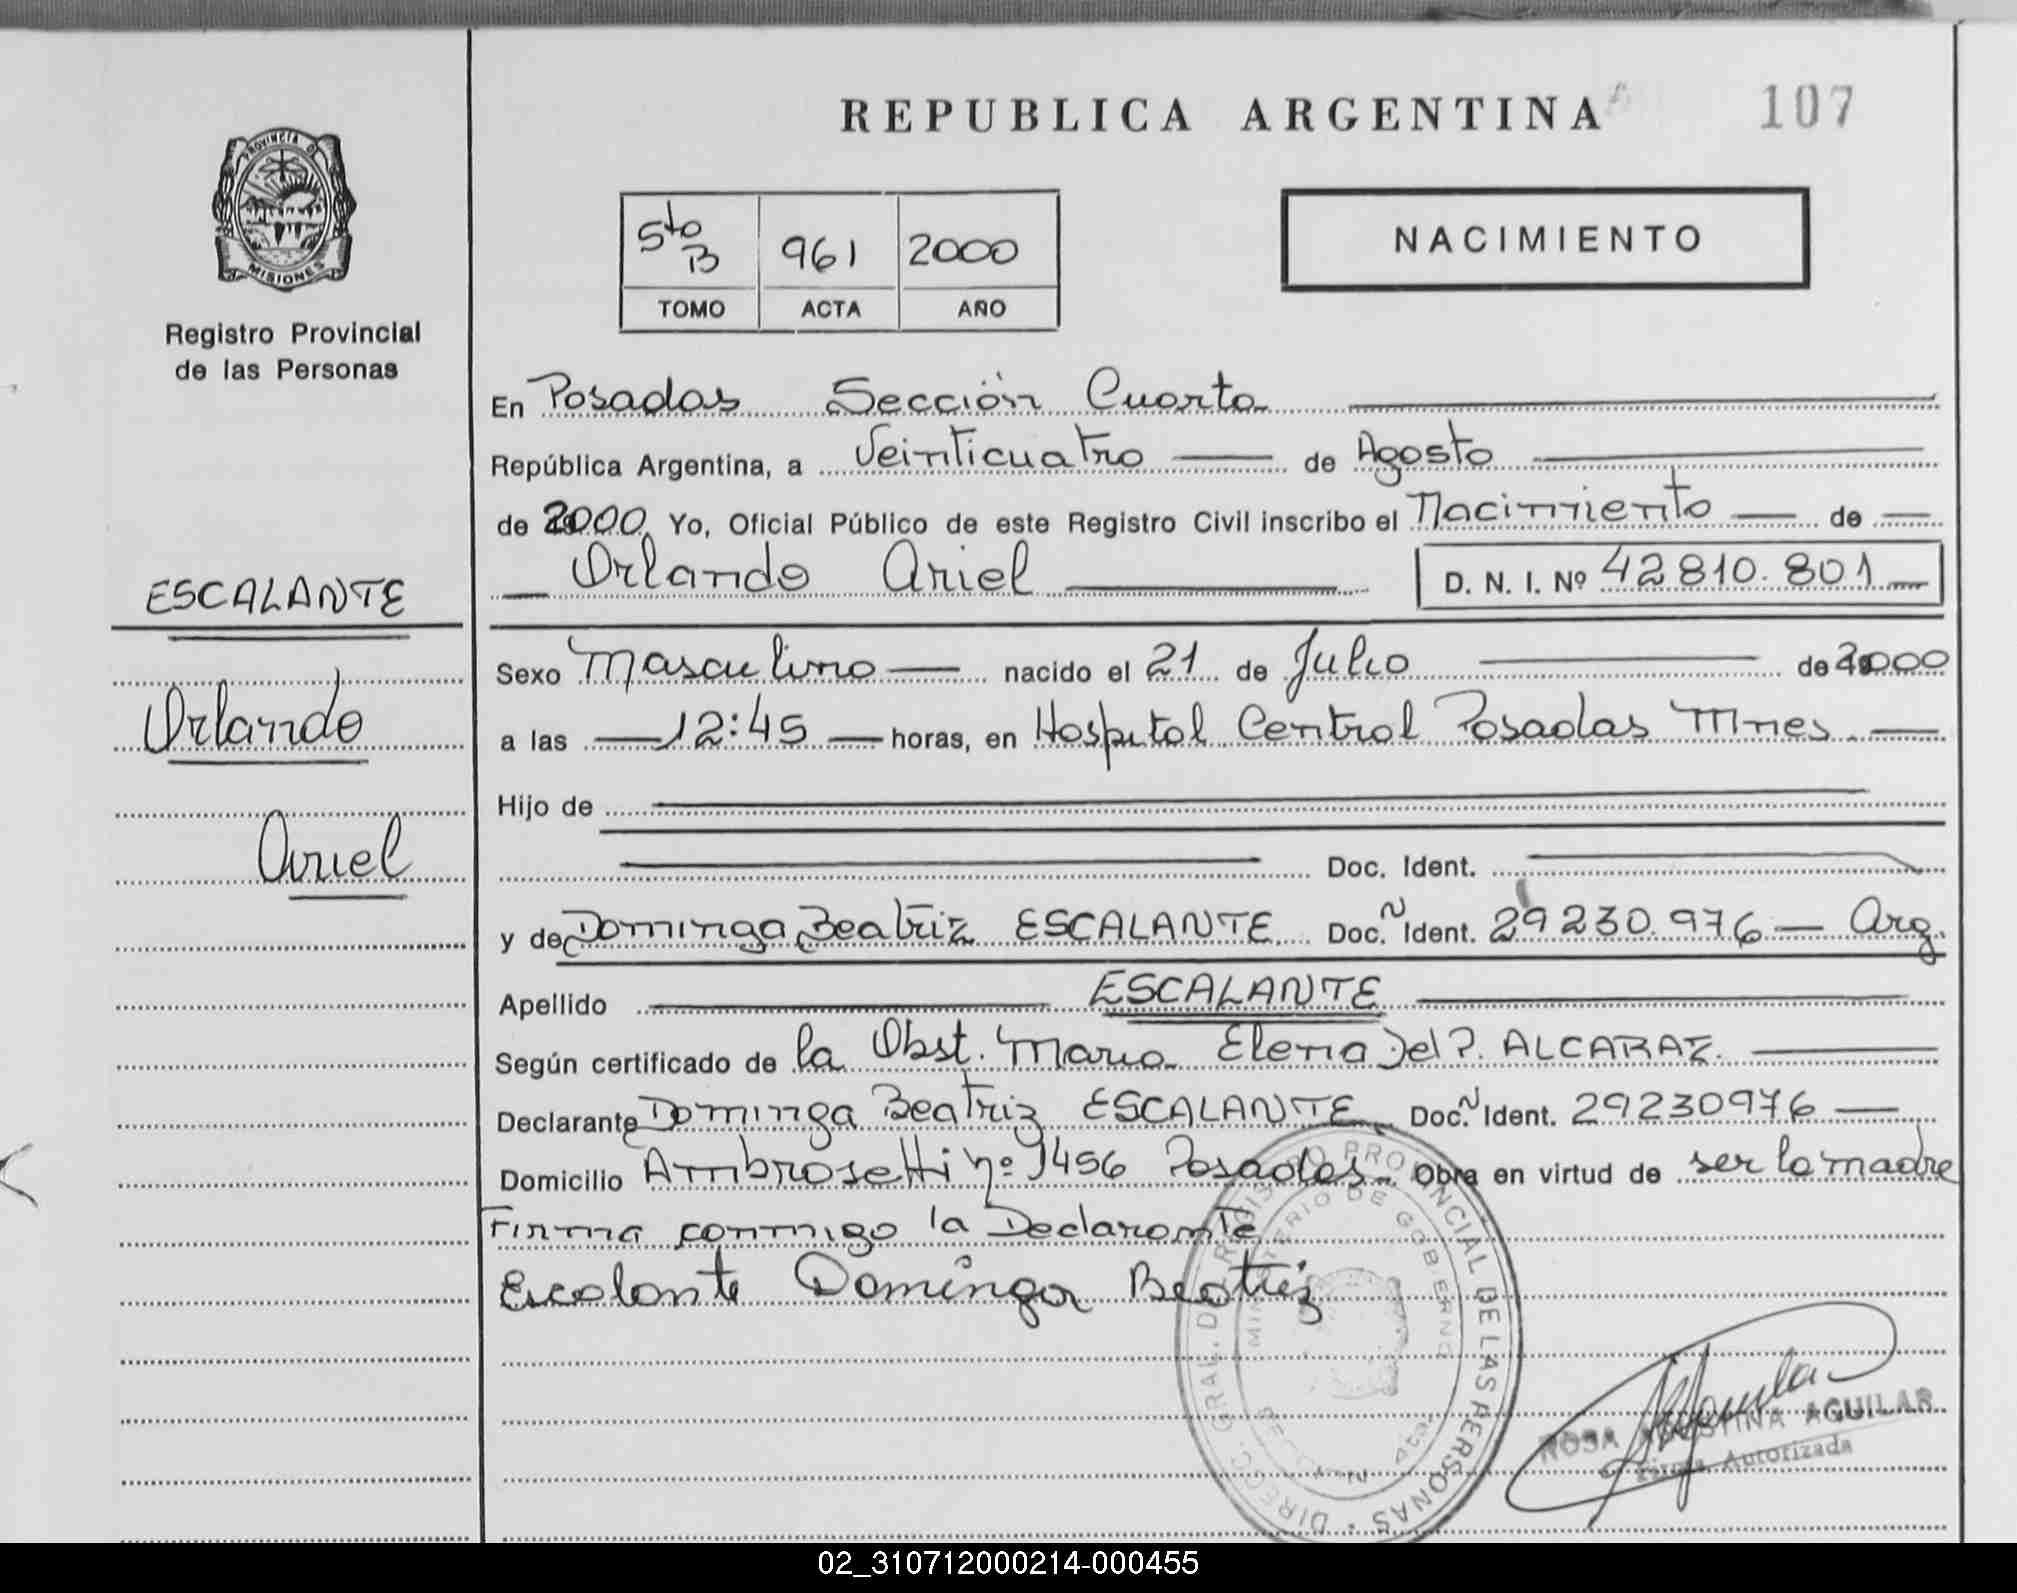 REPUBLICA ARGENTINA
107
PROVINCIA DE
MISIONES
Registro Provincial
de las Personas
5to B 961 2000
TOMO ACTA AÑO
NACIMIENTO
En Posadas Sección Cuarta
República Argentina, a Veinticuatro de Agosto
de 2000 Yo, Oficial Público de este Registro Civil inscribo el Nacimiento de
Orlando Ariel D. N. I. Nº 42810.801
ESCALANTE
Orlando
Ariel
Sexo Masculino nacido el 21 de Julio de 2000
a las 12:45 horas, en Hospital Central Posadas Mnes
Hijo de
Doc. Ident.
y de Dominga Beatriz ESCALANTE Doc. N Ident. 29230.976 Arg.
Apellido ESCALANTE
Según certificado de la Obst. Maria Elena Del P. ALCARAZ
Declarante Dominga Beatriz ESCALANTE Doc. N Ident. 29230976
Domicilio Ambrosetti nº 1456 Posadas Obra en virtud de ser la madre
Firma conmigo la Declarante
Escalante Dominga Beatriz
DIRECC. GRAL. DEL REGISTRO PROVINCIAL DE LAS PERSONAS
MINISTERIO DE GOBIERNO
ROSA AGUSTINA AGUILAR
Firma Autorizada
02_310712000214-000455